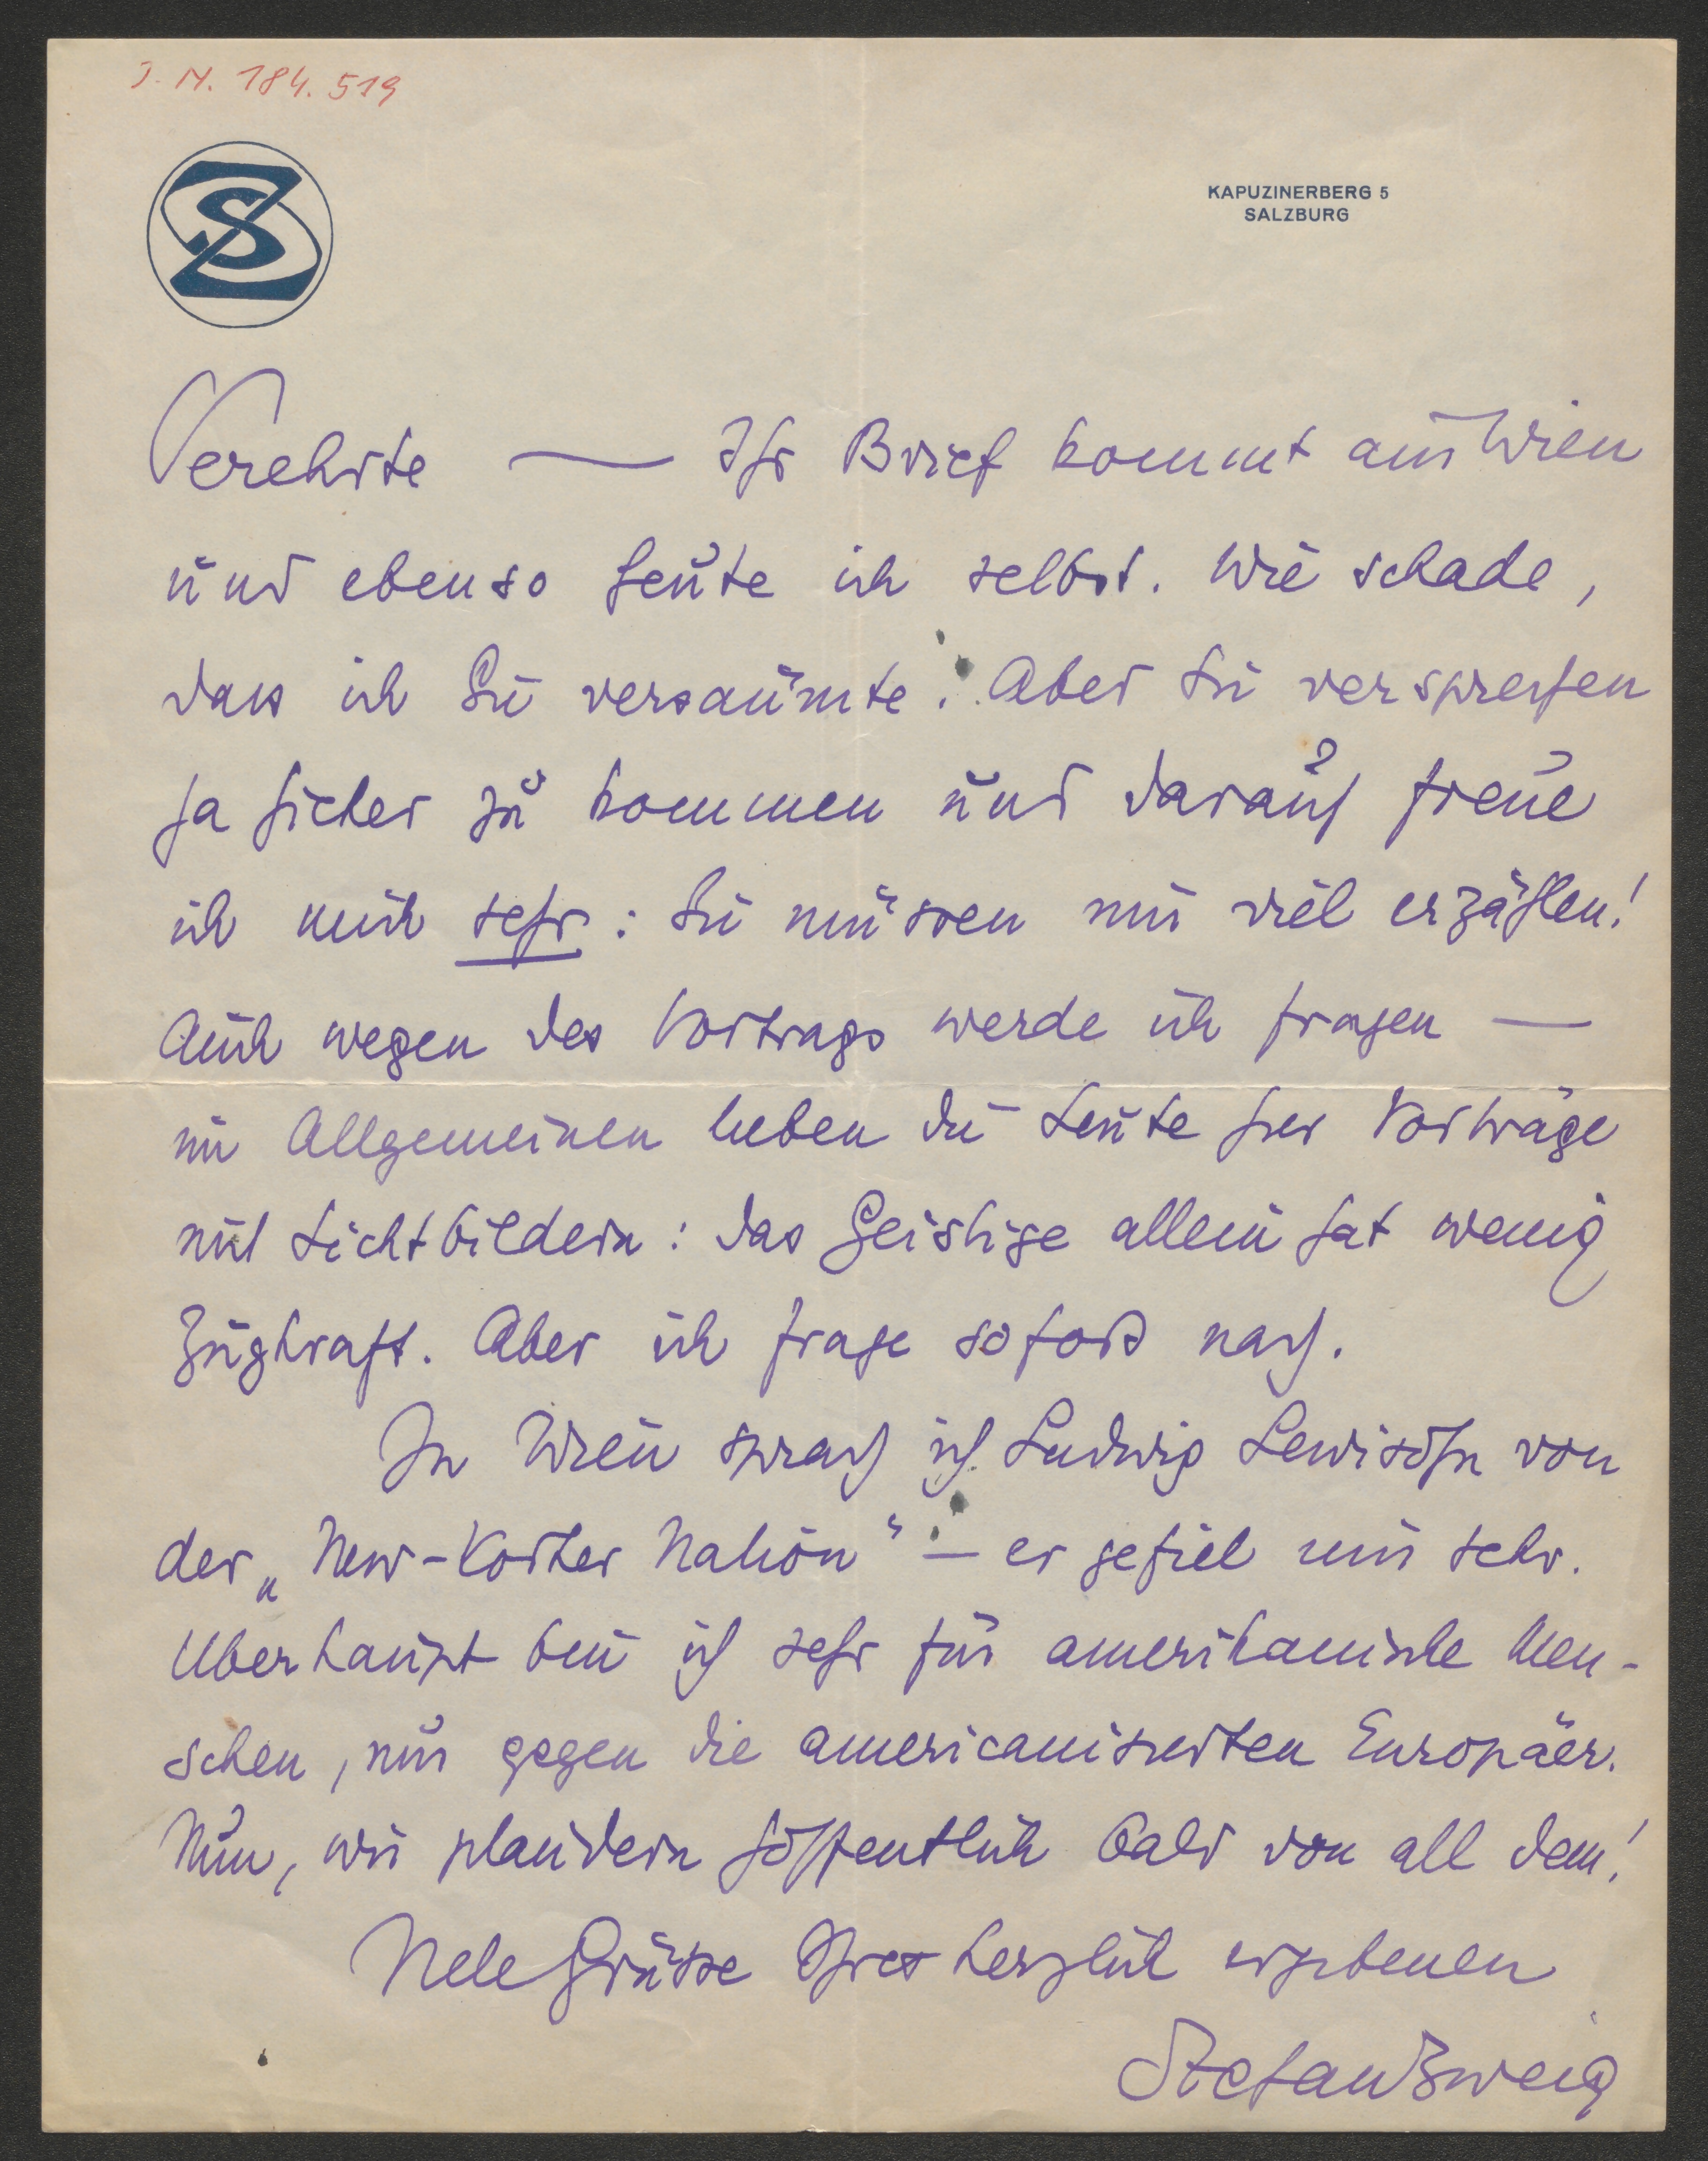 I. N. 184.519
SZ
KAPUZINERBERG 5
SALZBURG
Verehrte — Ihr Brief kommt aus Wien
und ebenso heute ich selbst. Wie schade,
dass ich Sie versäumte! Aber Sie versprechen
ja sicher zu kommen und darauf freue
ich mich sehr: Sie müssen mir viel erzählen!
Auch wegen des Vortrags werde ich fragen —
im Allgemeinen lieben die Leute hier Vorträge
mit Lichtbildern: das Geistige allein hat wenig
Zugkraft. Aber ich frage sofort nach.
In Wien sprach ich Ludwig Lewisohn von
der „New-Yorker Nation“ — er gefiel mir sehr.
Überhaupt bin ich sehr für amerikanische Men-
schen, nur gegen die americanisierten Europäer.
Nun, wir plaudern hoffentlich bald von all dem!
Viele Grüsse Ihres herzlich ergebenen
Stefan Zweig